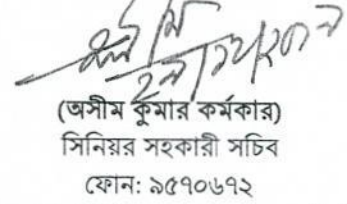 (অসীম কুমার কর্মকার)
সিনিয়র সহকারী সচিব
ফোন: ৯৫৭০৬৭২